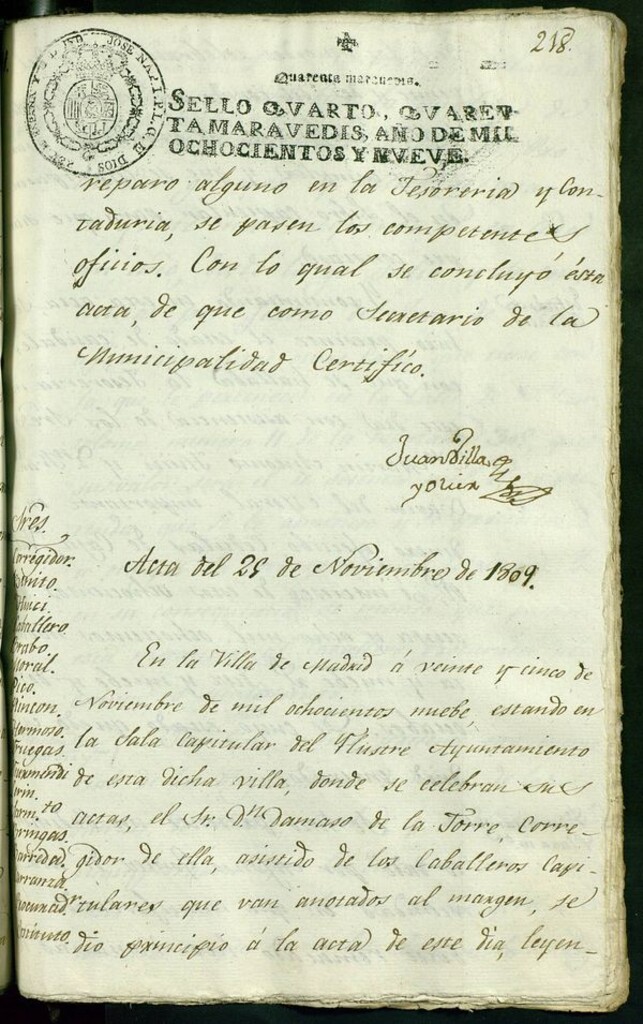 218.
Quarenta maravedis.
SELLO QVARTO, QVAREN-
TA MARAVEDIS, AÑO DE MIL
OCHOCIENTOS Y NVEVE.
reparo alguno en la Tesoreria y Con-
taduria, se pasen los competentes
oficios. Con lo qual se concluyó ésta
acta, de que como Secretario de la
Municipalidad Certifico.
Juan Villa
y Olier
Sres.
Corregidor.
Caballero
Moral.
Pico.
Rincon.
Hermoso.
Acta del 25 de Noviembre de 1809.
En la Villa de Madrid á veinte y cinco de
Noviembre de mil ochocientos nuebe, estando en
la Sala Capitular del Ylustre Ayuntamiento
de esta dicha villa, donde se celebran sus
actas, el Sr. Dn. Damaso de la Torre, Corre-
gidor de ella, asistido de los Caballeros Capi-
tulares que van anotados al margen, se
dio principio á la acta de este dia, leyen-